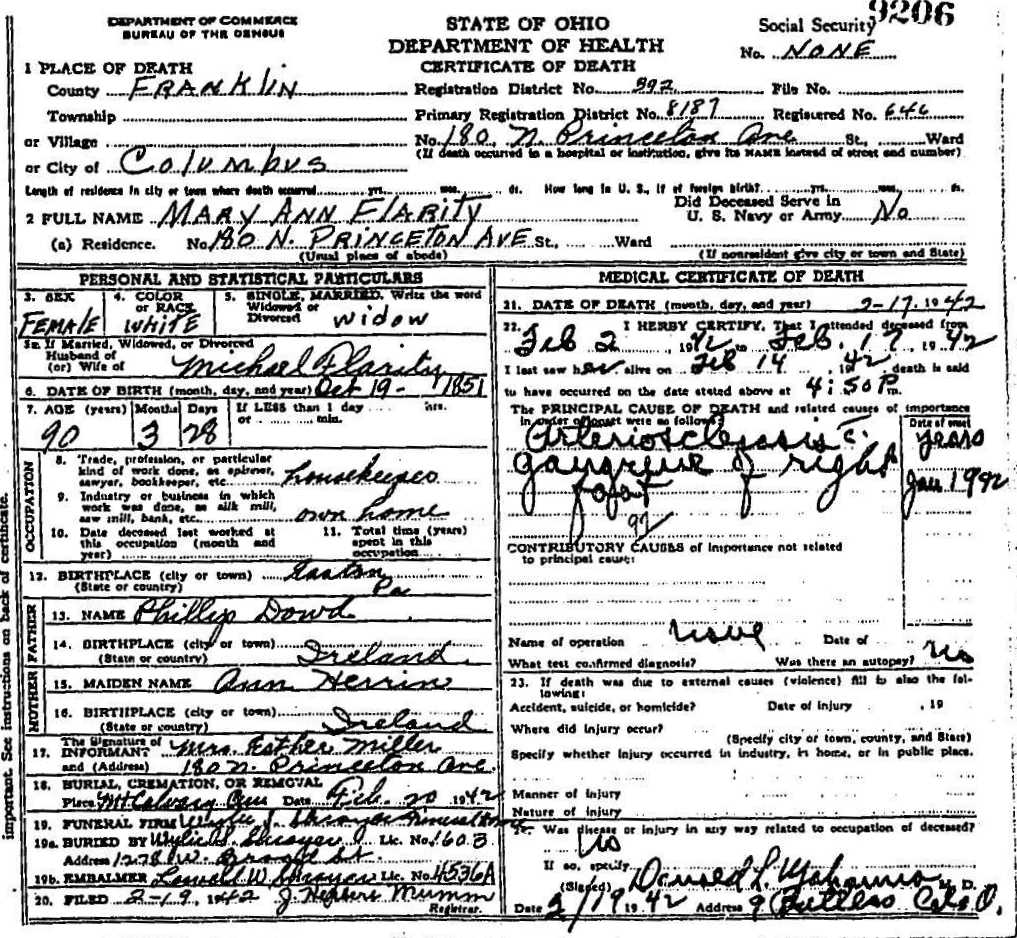 DEPARTMENT OF COMMERCE
BUREAU OF THE CENSUS
STATE OF OHIO
DEPARTMENT OF HEALTH
CERTIFICATE OF DEATH
9206
Social Security
No. NONE
1 PLACE OF DEATH
County FRANKlin
Registration District No. 392 File No.
Township
Primary Registration District No. 8187 Registered No. 646
or Village
No. 180 N. Princeton Ave St., Ward
(If death occurred in a hospital or institution, give its NAME instead of street and number)
or City of Columbus
Length of residence in city or town where death occurred yrs. mos. ds. How long in U. S., if of foreign birth? yrs. mos. ds.
2 FULL NAME MARY ANN FlARITY
Did Deceased Serve in
U. S. Navy or Army No
(a) Residence. No. 180 N. PRINCETON AVE St., Ward
(Usual place of abode) (If nonresident give city or town and State)
PERSONAL AND STATISTICAL PARTICULARS
3. SEX FEMALE
4. COLOR or RACE WHITE
5. SINGLE, MARRIED, Write the word
Widowed or
Divorced widow
5a. If Married, Widowed, or Divorced
Husband of
(or) Wife of Michael Flarity
6. DATE OF BIRTH (month, day, and year) Oct 19 - 1851
7. AGE (years) Months Days If LESS than 1 day hrs.
or min.
90 3 28
OCCUPATION
8. Trade, profession, or particular
kind of work done, as spinner,
sawyer, bookkeeper, etc. housekeeper
9. Industry or business in which
work was done, as silk mill,
saw mill, bank, etc. own home
10. Date deceased last worked at
this occupation (month and
year)
11. Total time (years)
spent in this
occupation
12. BIRTHPLACE (city or town) Easton
(State or country) Pa
FATHER
13. NAME Phillip Dowd
14. BIRTHPLACE (city or town)
(State or country) Ireland
MOTHER
15. MAIDEN NAME Ann Herrin
16. BIRTHPLACE (city or town)
(State or country) Ireland
17. The Signature of
INFORMANT Mrs. Esther Miller
and (Address) 180 N. Princeton Ave.
18. BURIAL, CREMATION, OR REMOVAL
Place Mt Calvary Cem Date Feb. 20 1942
19. FUNERAL FIRM J. Funeral Home
19a. BURIED BY Wylie Lic. No. 1603
Address 1278 W. Broad St.
19b. EMBALMER Lowell W. Lic. No. 4536A
20. FILED 2-19, 1942 J. Mumm
Registrar.
important. See instructions on back of certificate.
MEDICAL CERTIFICATE OF DEATH
21. DATE OF DEATH (month, day, and year) 2-17, 1942
22. I HERBY CERTIFY, That I attended deceased from
Feb 2 1942 to Feb. 17, 1942
I last saw her alive on Feb 14, 1942, death is said
to have occurred on the date stated above at 4:50 P.m.
The PRINCIPAL CAUSE OF DEATH and related causes of importance
in order of onset were as follows:
Date of onset
Arteriosclerosis c̄ years
gangrene of right Jan 1942
foot
97
CONTRIBUTORY CAUSES of importance not related
to principal cause:
Name of operation none Date of
What test confirmed diagnosis? Was there an autopsy? no
23. If death was due to external causes (violence) fill in also the fol-
lowing:
Accident, suicide, or homicide? Date of injury , 19
Where did injury occur?
(Specify city or town, county, and State)
Specify whether injury occurred in industry, in home, or in public place.
Manner of injury
Nature of injury
24. Was disease or injury in any way related to occupation of deceased?
No
If so, specify
(Signed) M. D.
Date 2/19 1942 Address 9 Buttles Cols O.